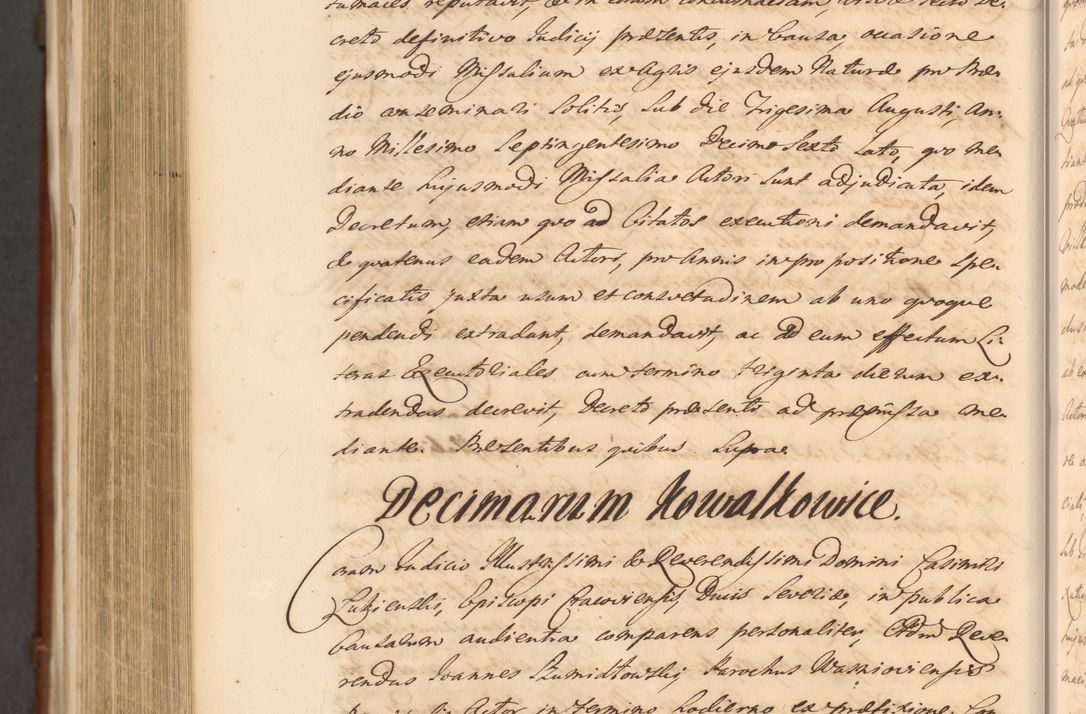 creto definitivo Judicij præsentis, in Causa, occasione
ejusmodi Missalium ex Agris ejusdem Naturæ pro Præ-
dio conseminari solitis, sub die Trigesima Augusti, An-
no Millesimo Septingentesimo Decimo Sexto lato, quo me-
diante hujusmodi Missalia Actori sunt adjudicata, idem
Decretum, etiam quo ad Citatos executioni demandavit,
& quatenus eadem Actori, pro Annis in propositione spe-
cificatis, juxta usum et consvetudinem ab uno quoque
pendendi extradant, demandavit, ac ad eum effectum Li-
teras Executoriales cum termino triginta dierum ex-
tradendas decrevit, Decreto præsenti ad præmissa me-
diante. Præsentibus quibus supra.
Decimarum Kowalkowice.
Coram Judicio Illustrissimi & Reverendissimi Domini Casimiri
Łubienski, Episcopi Cracoviensis, Ducis Severiæ, in publica
Causarum audientia comparens personaliter, Adm. Reve-
rendus Joannes Szmidtowski, Parochus Wasnioviensis
Actor in termino hodierno ex præfixione